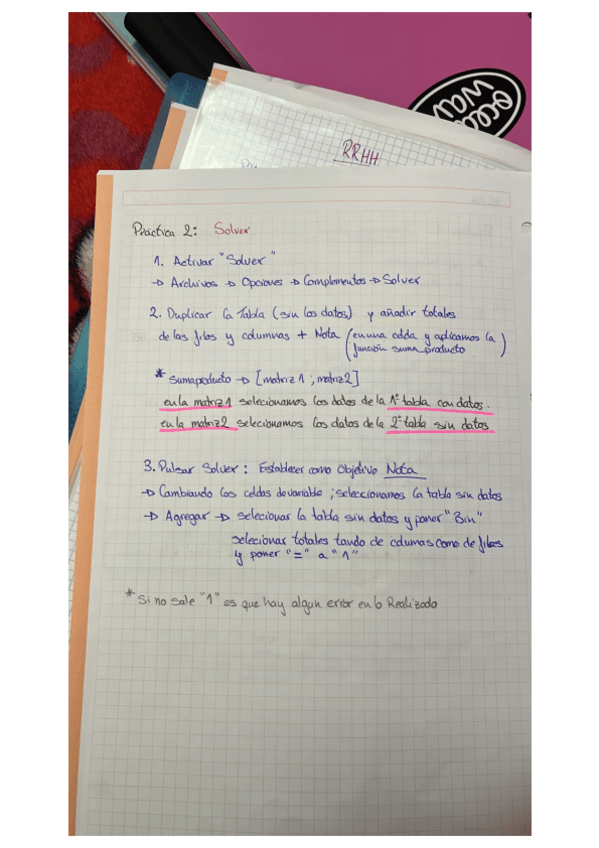 RRHH
Práctica 2: Solver
1. Activar "Solver"
→ Archivos → Opciones → Complementos → Solver
2. Duplicar la Tabla (sin los datos) y añadir totales
de las filas y columnas + Nota (en una celda y aplicamos la
función suma producto)
* Sumaproducto → [matriz1 ; matriz2]
en la matriz1 selecionamos los datos de la 1ª tabla con datos.
en la matriz2 selecionamos los datos de la 2ª tabla sin datos
3. Pulsar Solver: Establecer como Objetivo Nota
→ Cambiando las celdas de variable ; seleccionamos la tabla sin datos
→ Agregar → selecionar la tabla sin datos y poner "Bin"
selecionar totales tando de columas como de filas
y poner "=" a "1"
* Si no sale "1" es que hay algun error en lo Realizado